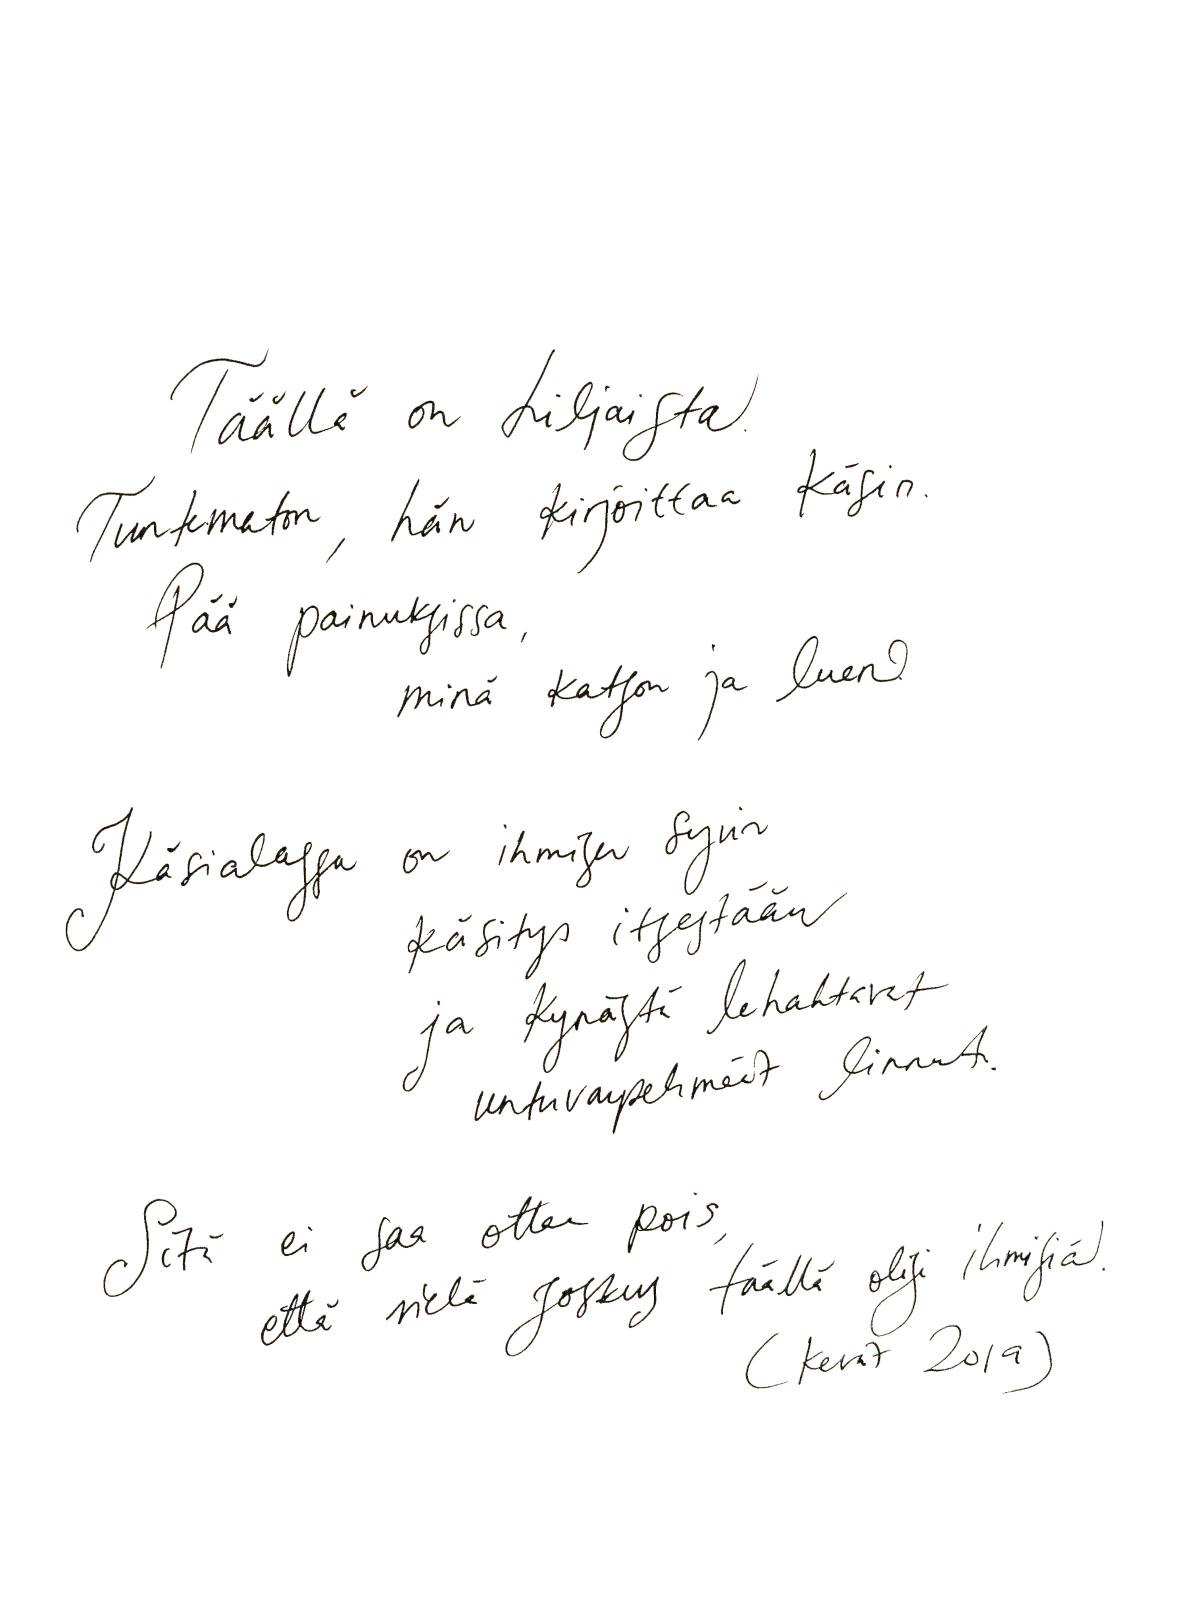 Täällä on hiljaista.
Tuntematon, hän kirjoittaa käsin.
Pää painuksissa,
minä katson ja luen.
Käsialassa on ihmisen syvin
käsitys itsestään
ja kynästä lehahtavat
untuvanpehmeät linnut.
Sitä ei saa ottaa pois,
että vielä joskus täällä olisi ihmisiä.
(kevät 2019)